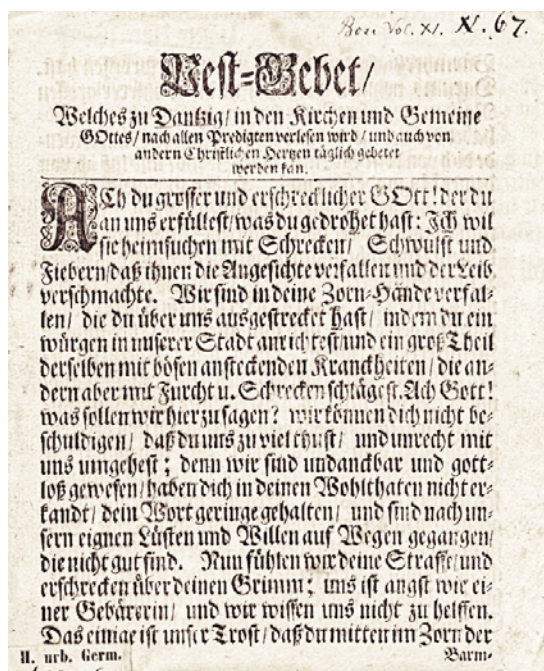 Bori Vol. XI. N. 67.
Pest-Gebet/
Welches zu Dantzig/ in den Kirchen und Gemeine
GOttes/ nach allen Predigten verlesen wird/ und auch von
andern Christlichen Hertzen täglich gebetet
werden kan.
ACh du grosser und erschrecklicher GOtt! der du
an uns erfüllest/ was du gedrohet hast: Ich wil
sie heimsuchen mit Schrecken/ Schwulst und
Fiebern/ daß ihnen die Angesichte verfallen und der Leib
verschmachte. Wir sind in deine Zorn-Hände verfal-
len/ die du über uns ausgestrecket hast/ indem du ein
würgen in unserer Stadt anrichtest/ und ein groß Theil
derselben mit bösen ansteckenden Kranckheiten/ die an-
dern aber mit Furcht u. Schrecken schlägest. Ach Gott!
was sollen wir hier zu sagen? wir können dich nicht be-
schuldigen/ daß du uns zu viel thust/ und unrecht mit
uns umgehest; denn wir sind undanckbar und gott-
loß gewesen/ haben dich in deinen Wohlthaten nicht er-
kandt/ dein Wort geringe gehalten/ und sind nach un-
sern eignen Lüsten und Willen auf Wegen gegangen/
die nicht gut sind. Nun fühlen wir deine Straffe/ und
erschrecken über deinen Grimm; uns ist angst wie ei-
ner Gebärerin/ und wir wissen uns nicht zu helffen.
Das einige ist unser Trost/ daß du mitten im Zorn der
II. urb. Germ. Barm-